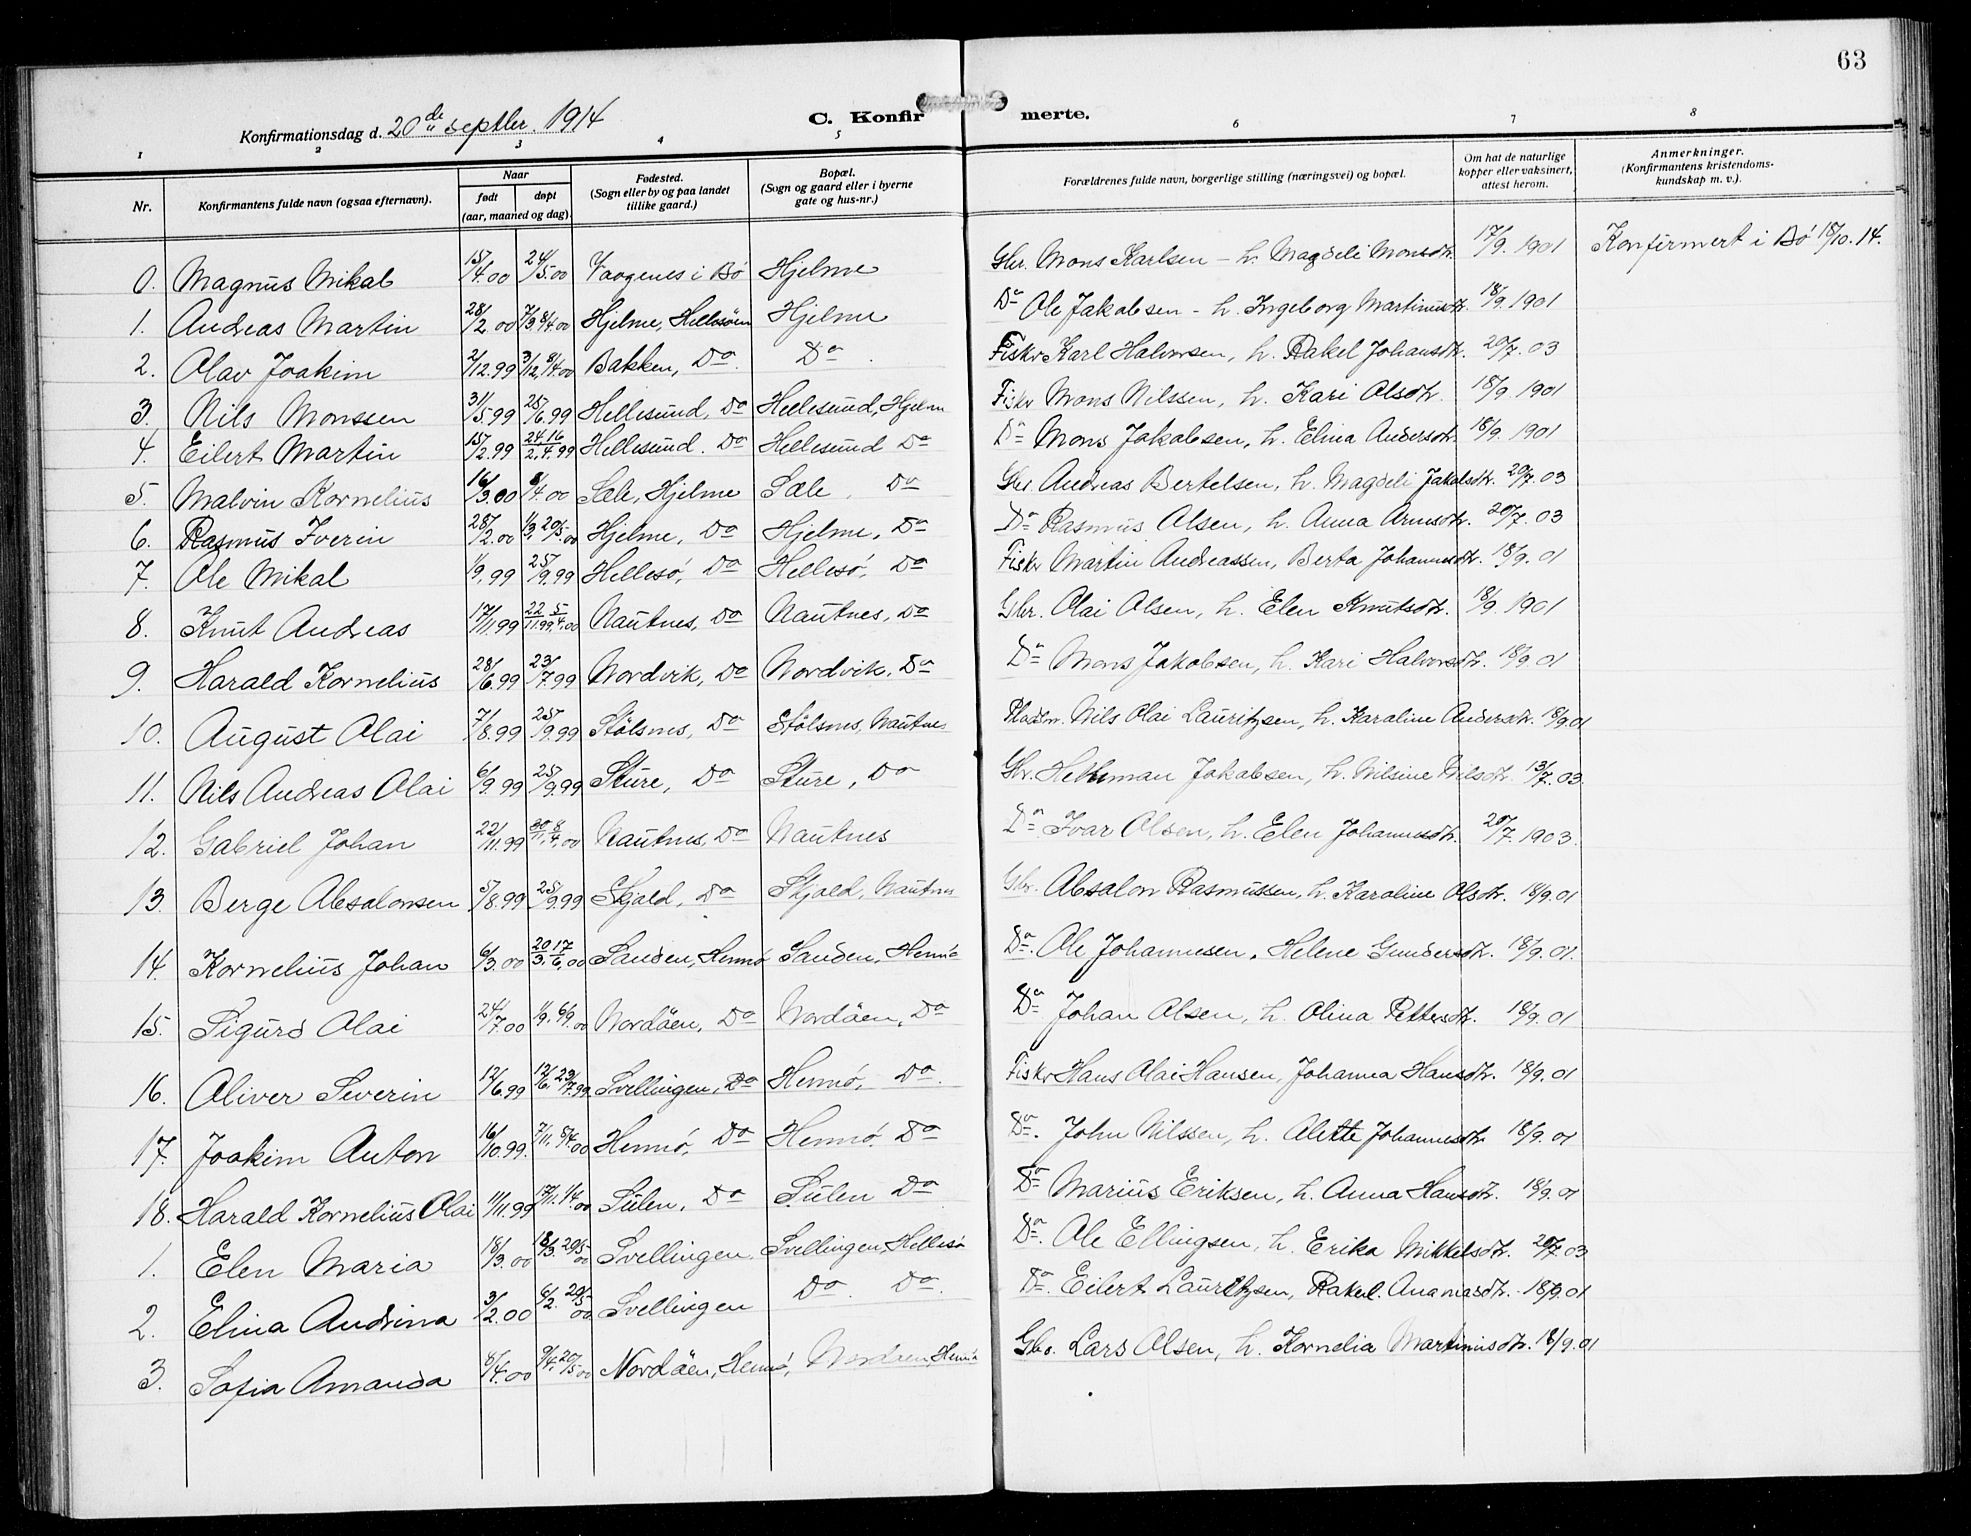 63
Konfirmationsdag d. 20de septbr. 1914
C. Konfirmerte.
1 2 3 4 5 6 7 8
Nr. Konfirmantens fulde navn (ogsaa efternavn). Naar født døpt (aar, maaned og dag). Fødested. (Sogn eller by og paa landet tillike gaard.) Bopæl. (Sogn og gaard eller i byerne gate og hus-nr.) Forældrenes fulde navn, borgerlige stilling (næringsvei) og bopæl. Om hat de naturlige kopper eller vaksinert, attest herom. Anmerkninger. (Konfirmantens kristendomskundskap m. v.).
0. Magnus Mikal 15/4.00 24/5.00 Vaagenes i Bö Hjelme Gbr. Mons Karlsen - h. Magdeli Monsdtr. 17/9. 1901 Konfirmert i Bö 18/10.14.
1. Andreas Martin 28/2.00 7/3 8/4.00 Hjelme, Hellesöen Hjelme Do Ole Jakobsen - h. Ingeborg Martinusdtr. 18/9.1901
2. Olav Joakim 2/12.99 3/12 8/4.00 Bakken, Do. Do. Fiskr Karl Halvorsen, h. Rakel Johansdtr. 20/7.03
3. Nils Monssen 31/5.99 25/6.99 Hellesund, Do Hellesund, Hjelm Fiskr Mons Nilssen, h. Kari Olsdtr. 18/9 1901
4. Eilert Martin 15/2.99 24/2. 16/4.99 Hellesund. Do Hellesund Do Do Mons Jakobsen, h. Elina Andersdtr. 18/9. 1901
5. Malvin Kornelius 16/3.00 8/4.00 Sæle, Hjelme Sæle, Do Gbr. Andreas Bertelsen, h. Magdeli Jakobsdtr. 20/7.03
6. Rasmus Iverin 28/2.00 1/3. 20/5.00 Hjelme, Do Hjelme, Do Do Rasmus Olsen, h. Anna Arnesdtr. 20/7.03
7. Ole Mikal 1/9.99 25/9.99 Hellesö, Do Hellesö, Do Fiskr Martin Andreassen, Berta Johannesdtr. 18/9.01
8. Knut Andreas 17/11.99 22/11.99. 5/4.00 Nautnes, Do Nautnes, Do Gbr. Olai Olsen, h. Elen Knutsdtr. 18/9.1901
9. Harald Kornelius 28/6.99 23/7.99 Nordvik, Do Nordvik, Do Do Mons Jakobsen, h. Kari Halvorsdtr. 18/9.01
10. August Olai 7/8.99 25/9.99 Stölsnes, Do Stölsnes, Nautnes Pladsm. Nils Olai Lauritzsen, h. Karaline Andersdtr. 18/9.01
11. Nils Andreas Olai 6/9.99 25/9.99 Sture, Do Sture, Do Gbr. Helleman Jakobsen, h. Nilsine Nilsdtr. 13/7.03.
12. Gabriel Johan 22/11.99 30/11. 8/4.00 Nautnes, Do Nautnes Do Ivar Olsen, h. Elen Johannesdtr. 20/7.1903.
13. Berge Absalonsen 5/8.99 25/9.99 Skjold, Do Skjold, Nautnes Gbr. Absalon Rasmussen, h. Karoline Olsdtr. 18/9.01
14. Kornelius Johan 6/3.00 20/3. 17/6.00 Sanden, Hernö Sanden, Hernö Do. Ole Johannesen, Helene Gundersdtr. 18/9.01.
15. Sigurd Olai 24/7.00 1/9. 6/9.00 Nordöen, Do Nordöen, Do Do Johan Olsen, h. Olina Pettersdtr. 18/9.01
16. Oliver Severin 12/6.99 13/6. 23/7.99 Svellingen, Do Hernö, Do. Fiskr Hans Olai Hansen, Johanna Hansdtr. 18/9.01
17. Joakim Anton 16/10.99. 7/11. 8/4.00 Hernö, Do Hernö. Do Do. John Nilssen, h. Alette Johannesdtr 18/9.01
18. Harald Kornelius Olai 11/11.99 17/11. 1/4.00 Sulen, Do Sulen Do Do Marius Eriksen, h. Anna Hansdtr. 18/9.01
1. Elen Maria 18/3.00 18/3. 20/5.00 Svellingen Svellingen, Hellesö Do. Ole Ellingsen, h. Erika Mikkelsdtr. 20/7.03
2. Elina Andrina 3/2.00 6/2. 20/5.00 Svellingen Do. Do. Do Eilert Lauritzsen, Rakel. Ananiasdtr. 18/9.01
3. Sofia Amanda 8/4.00 9/4. 20/5.00 Nordöen, Hernö, Nordöen, Hernö Gbr. Lars Olsen, h. Kornelia Martinusdtr. 18/9.01